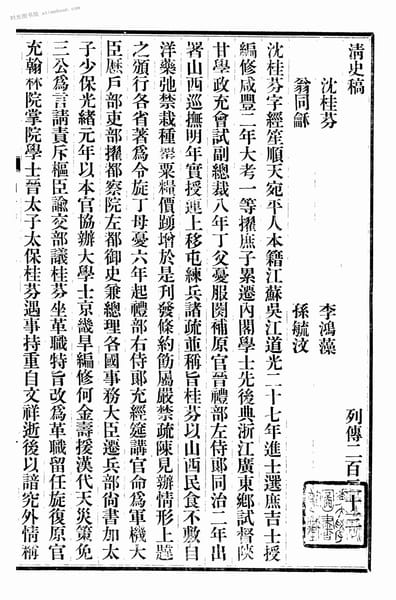 清史稿 列傳二百二十三
沈桂芬 李鴻藻
翁同龢 孫毓汶
沈桂芬字經笙順天宛平人本籍江蘇吳江道光二十七年進士選庶吉士授
編修咸豐二年大考一等擢庶子累遷內閣學士先後典浙江廣東鄉試督陝
甘學政充會試副總裁八年丁父憂服闋補原官晉禮部左侍郎同治二年出
署山西巡撫明年實授連上移屯練兵諸疏並稱旨桂芬以山西民食不敷自
洋藥弛禁栽種罌粟糧價踴增於是刊發條約飭屬嚴禁疏陳見辦情形上韙
之頒行各省著爲令旋丁母憂六年起禮部右侍郎充經筵講官命爲軍機大
臣歷戶部吏部擢都察院左都御史兼總理各國事務大臣遷兵部尚書加太
子少保光緒元年以本官協辦大學士京畿旱編修何金壽援漢代天災策免
三公爲言請責斥樞臣諭交部議桂芬坐革職特旨改爲革職留任旋復原官
充翰林院掌院學士晉太子太保桂芬遇事持重自文祥逝後以諳究外情稱